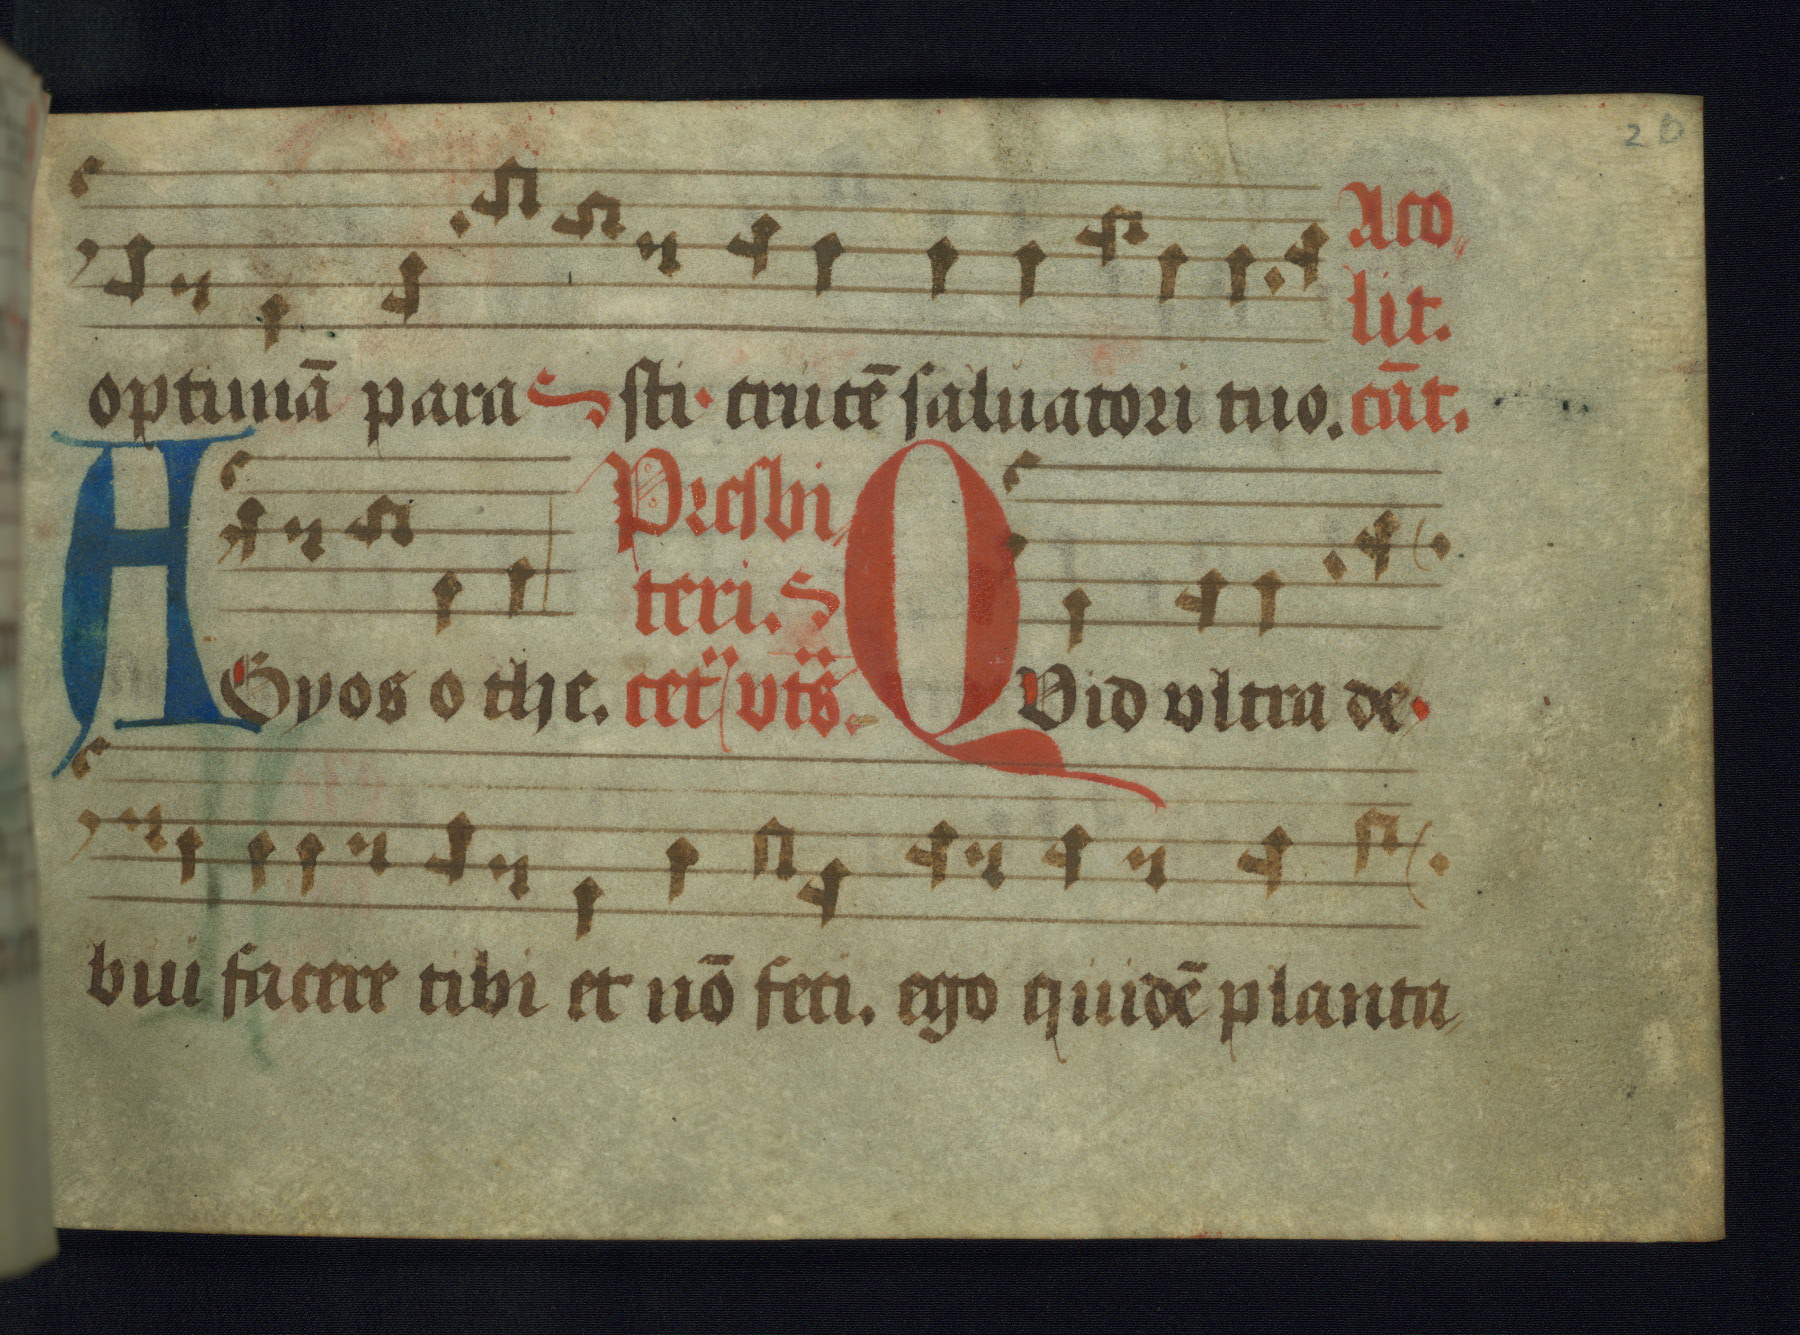 20
optimā para sti crucē saluatori tuo.
Aco
lit.
cāt.
AGyos o the.
Presbi
teri.
cet vts.
QVid vltra de
bui facere tibi et nō feci. ego quidē planta